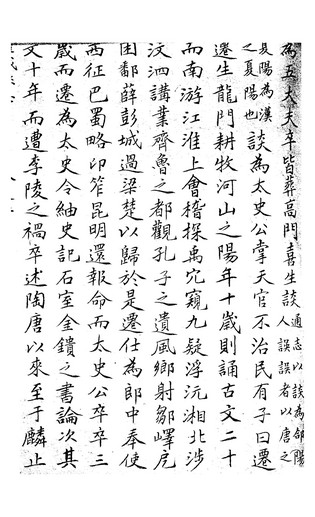 為五大夫卒皆葬高門喜生談通志以談為郃陽
人誤誤者以唐之
夏陽為漢
之夏陽也談為太史公掌天官不治民有子曰遷
遷生龍門耕牧河山之陽年十歲則誦古文二十
而南游江淮上會稽探禹穴窺九疑浮沅湘北涉
汶泗講業齊魯之都觀孔子之遺風鄉射鄒嶧戹
困鄱薛彭城過梁楚以歸於是遷仕為郎中奉使
西征巴蜀略卭笮昆明還報命而太史公卒卒三
歲而遷為太史令紬史記石室金鐀之書論次其
文十年而遭李陵之禍卒述陶唐以來至于麟止